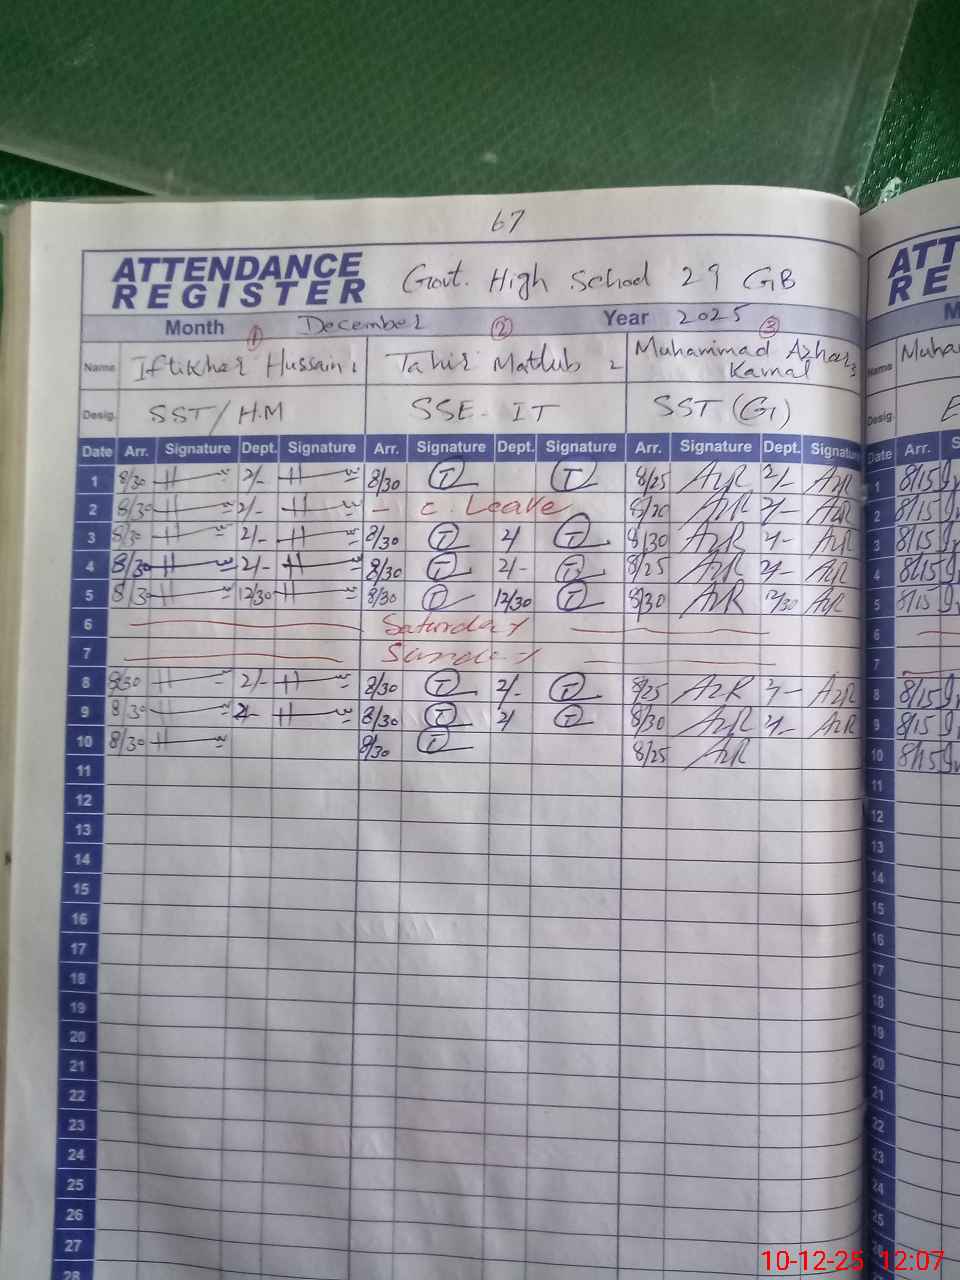 67
ATTENDANCE REGISTER Govt. High School 29 GB
Month December Year 2025
1 2 3
Name Iftikhar Hussain 1 Tahir Matlub 2 Muhammad Azhar 3 Kamal
Desig. SST/H.M SSE- IT SST (G)
Date Arr. Signature Dept. Signature Arr. Signature Dept. Signature Arr. Signature Dept. Signature
1 8/30 2/- 8/30 T T 8/25 AzR 2/- AzR
2 8/30 2/- - C. Leave 8/20 AzR 2/- AzR
3 8/30 2/- 8/30 T 2/ T 8/30 AzR 2/- AzR
4 8/30 2/- 8/30 T 2/- T 8/25 AzR 2/- AzR
5 8/30 12/30 8/30 T 12/30 T 8/30 AzR 12/30 AzR
6 Saturday
7 Sunday
8 8/30 2/- 8/30 T 2/- T 8/25 AzR 2/- AzR
9 8/30 2/- 8/30 T 2/ T 8/30 AzR 2/- AzR
10 8/30 8/30 T 8/25 AzR
11
12
13
14
15
16
17
18
19
20
21
22
23
24
25
26
27
28
ATT
RE
M
Name Muha
Desig. E
Date Arr. S
1 8/15
2 8/15
3 8/15
4 8/15
5 8/15
6
7
8 8/15
9 8/15
10 8/15
11
12
13
14
15
16
17
18
19
20
21
22
23
24
25
26
10-12-25 12:07